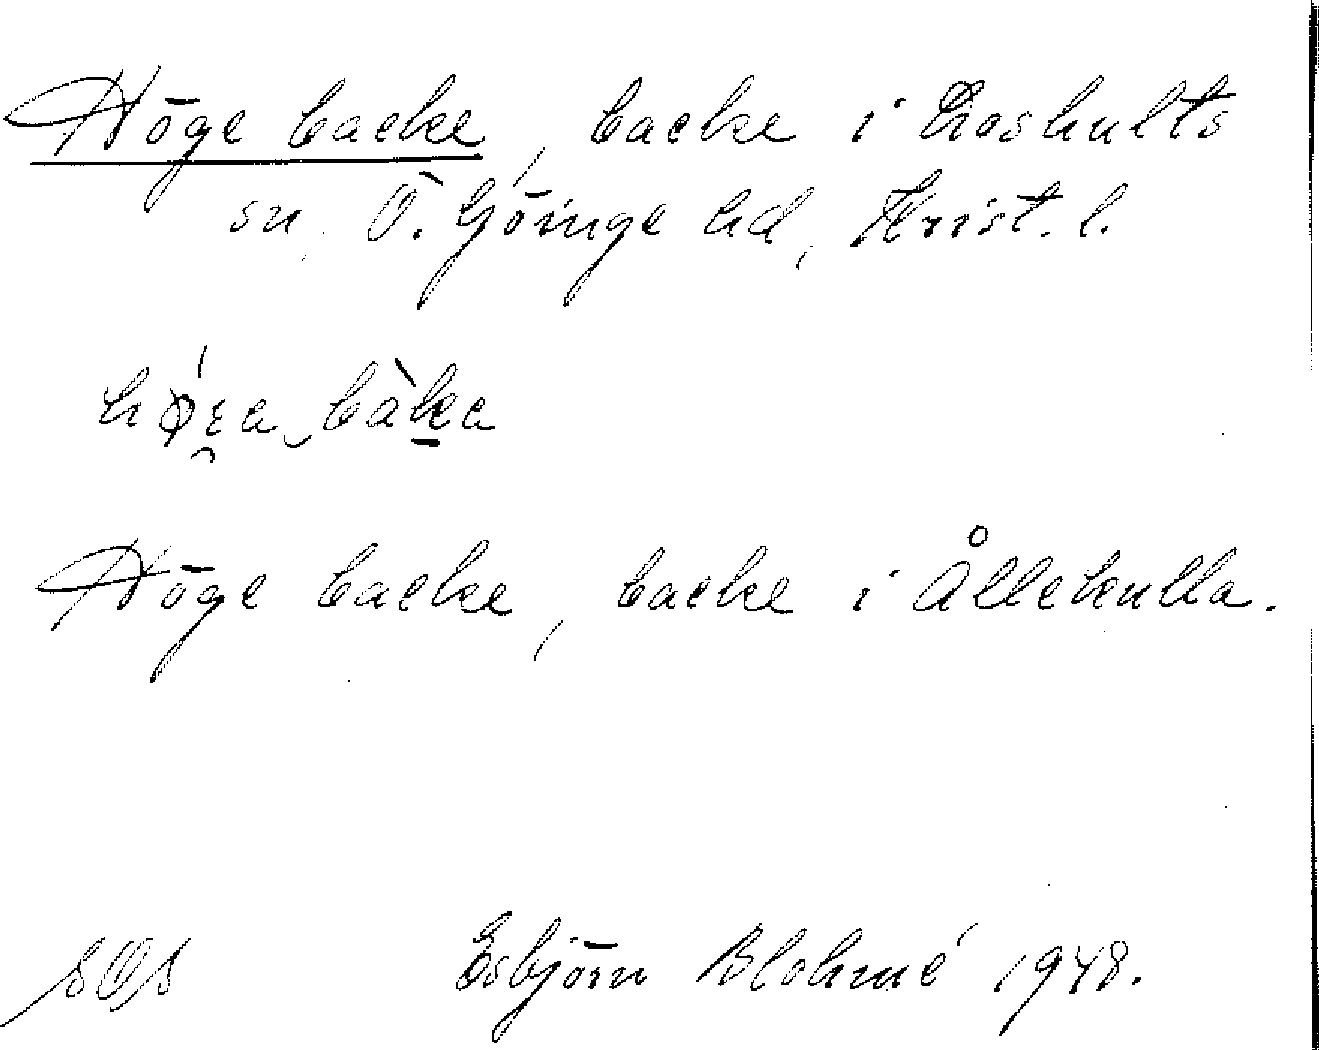 Höge backe, backe i Loshults
sn. Ö. Göinge hd, Krist. l.
Höge backe, backe i Ållekulla.
Esbjörn Blohmé 1948.